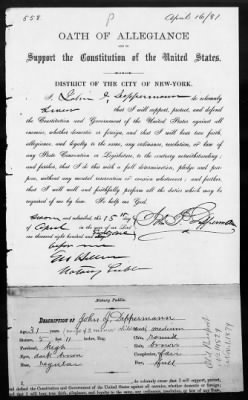 558 P April 16/81
OATH OF ALLEGIANCE
Support the Constitution of the United States.
DISTRICT OF THE CITY OF NEW-YORK.
I, John J. Deppermann do solemnly
swear that I will support, protect and defend
the Constitution and Government of the United States against all
enemies, whether domestic or foreign, and that I will bear true faith,
allegiance, and loyalty to the same, any ordinance, resolution, or law of
any State Convention or Legislature, to the contrary notwithstanding;
and further, that I do this with a full determination, pledge and purpose,
without any mental reservation or evasion whatsoever; and further,
that I will well and faithfully perform all the duties which may be
required of me by law. So help me God.
Sworn and submitted, this 15th day
of April
one thousand eight hundred and
before me
John J. Deppermann
Notary Public
Notary Public.
DESCRIPTION OF John J. Deppermann
Age, 31 years medium
Stature, 5 11 round
Forehead, high brown
Eyes, dark brown
Nose, regular full